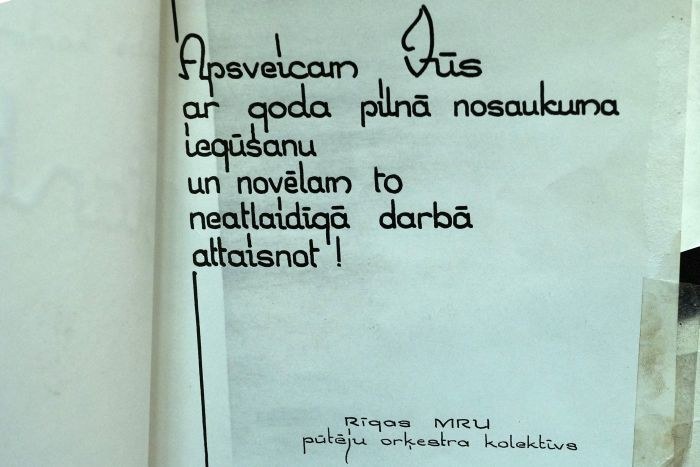 Apsveicam Jūs
ar goda pilnā nosaukuma
iegūšanu
un novēlam to
neatlaidīgā darbā
attaisnot !
Rīgas MRU
pūtēju orķestra kolektīvs